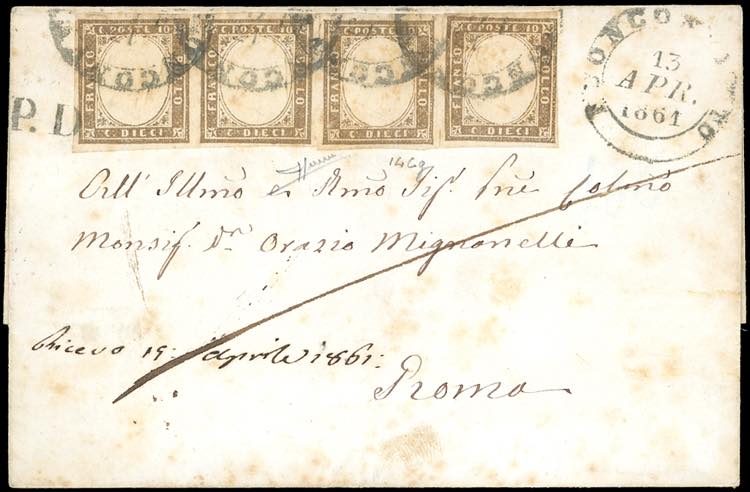 C. POSTE 10 C. POSTE 10 C. POSTE 10 C. POSTE 10
FRANCO BOLLO FRANCO BOLLO FRANCO BOLLO FRANCO BOLLO
C. DIECI C. DIECI C. DIECI C. DIECI
13
APR.
1861
P.D
14Cg
All' Illmo e Rmo Sig. Pne Colmo
Monsig. Dn Orazio Mignanelli
Ricevo 19: Aprile 1861:
Roma